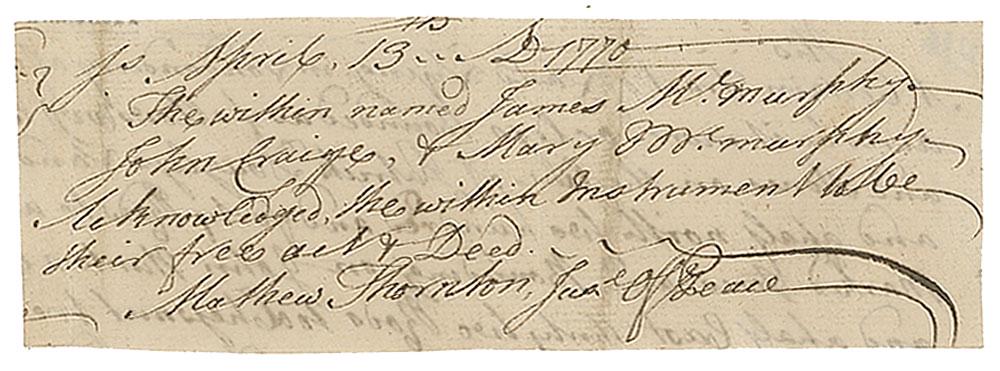 Js. April, 13th AD 1770
The within named James Mc.murphy
John Craige, & Mary Mc.murphy
Acknowledged, the within Instrument to be
their free act & Deed.
Mathew Thornton, Jus.e Of Peace